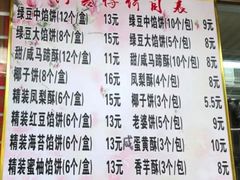 绿豆中馅饼(12个/盒) 13元
绿豆大馅饼(8个/盒) 13元
甜/咸马蹄酥(12个/盒) 15元
椰子饼(12个/盒) 16元
精装凤梨酥(6个/盒) 13元
精装红豆馅饼(6个/盒) 13元
精装海苔馅饼(6个/盒) 13元
精装蜜柚馅饼(6个/盒) 13元
绿豆中馅饼(10个/包) 9元
绿豆大馅饼(5个/包) 8元
甜/咸马蹄酥(5个/包) 6元
凤梨酥(4个/包) 8元
椰子饼(3个/包) 5.5元
老婆饼(5个/包) 9元
咸蛋黄酥(3个/包) 10元
香芋酥(3个/包) 8元